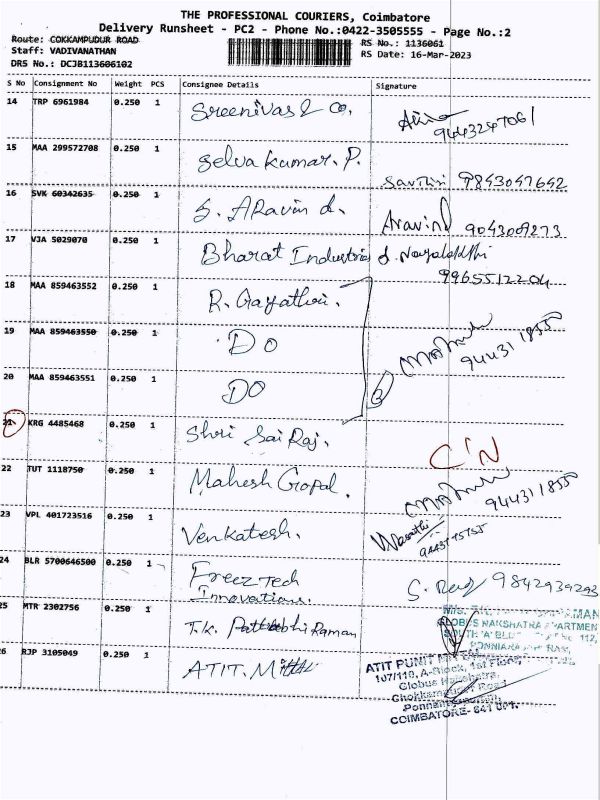 THE PROFESSIONAL COURIERS, Coimbatore
Delivery Runsheet - PC2 - Phone No.:0422-3505555 - Page No.:2
Route: COKKAMPUDUR ROAD
RS No.: 1136061
Staff: VADIVANATHAN
RS Date: 16-Mar-2023
DRS No.: DCJB113606102
S No Consignment No Weight PCS Consignee Details Signature
14 TRP 6961984 0.250 1 Sreenivas & Co. 9443247061
15 MAA 299572708 0.250 1 Selva kumar. P. Savithri 9843047642
16 SVK 60342635 0.250 1 S. ARavin d. Aravind 9043009273
17 VJA 5029070 0.250 1 Bharat Industries 9965512204
18 MAA 859463552 0.250 1 R. Gayathri.
19 MAA 859463550 0.250 1 DO 9444311855
20 MAA 859463551 0.250 1 DO 3
21 KRG 4485468 0.250 1 Shri Sai Raj. C'N
22 TUT 1118750 0.250 1 Mahesh Gopal. 944311855
23 VPL 401723516 0.250 1 Venkatesh. Vasathi
24 BLR 5700646500 0.250 1 Freez Tech S. Raj 9842939293
Innovations.
25 MTR 2302756 0.250 1 T.K. Pattabhi Raman
GLOBUS NAKSHATRA APARTMEN
SOUTH 'A' BL 112,
26 RJP 3105049 0.250 1 ATIT. M
ATIT PUNIT
107/110, A-Block, 1st Floor,
Globus Nakshatra,
Chokkampudur Road
COIMBATORE- 641 071.